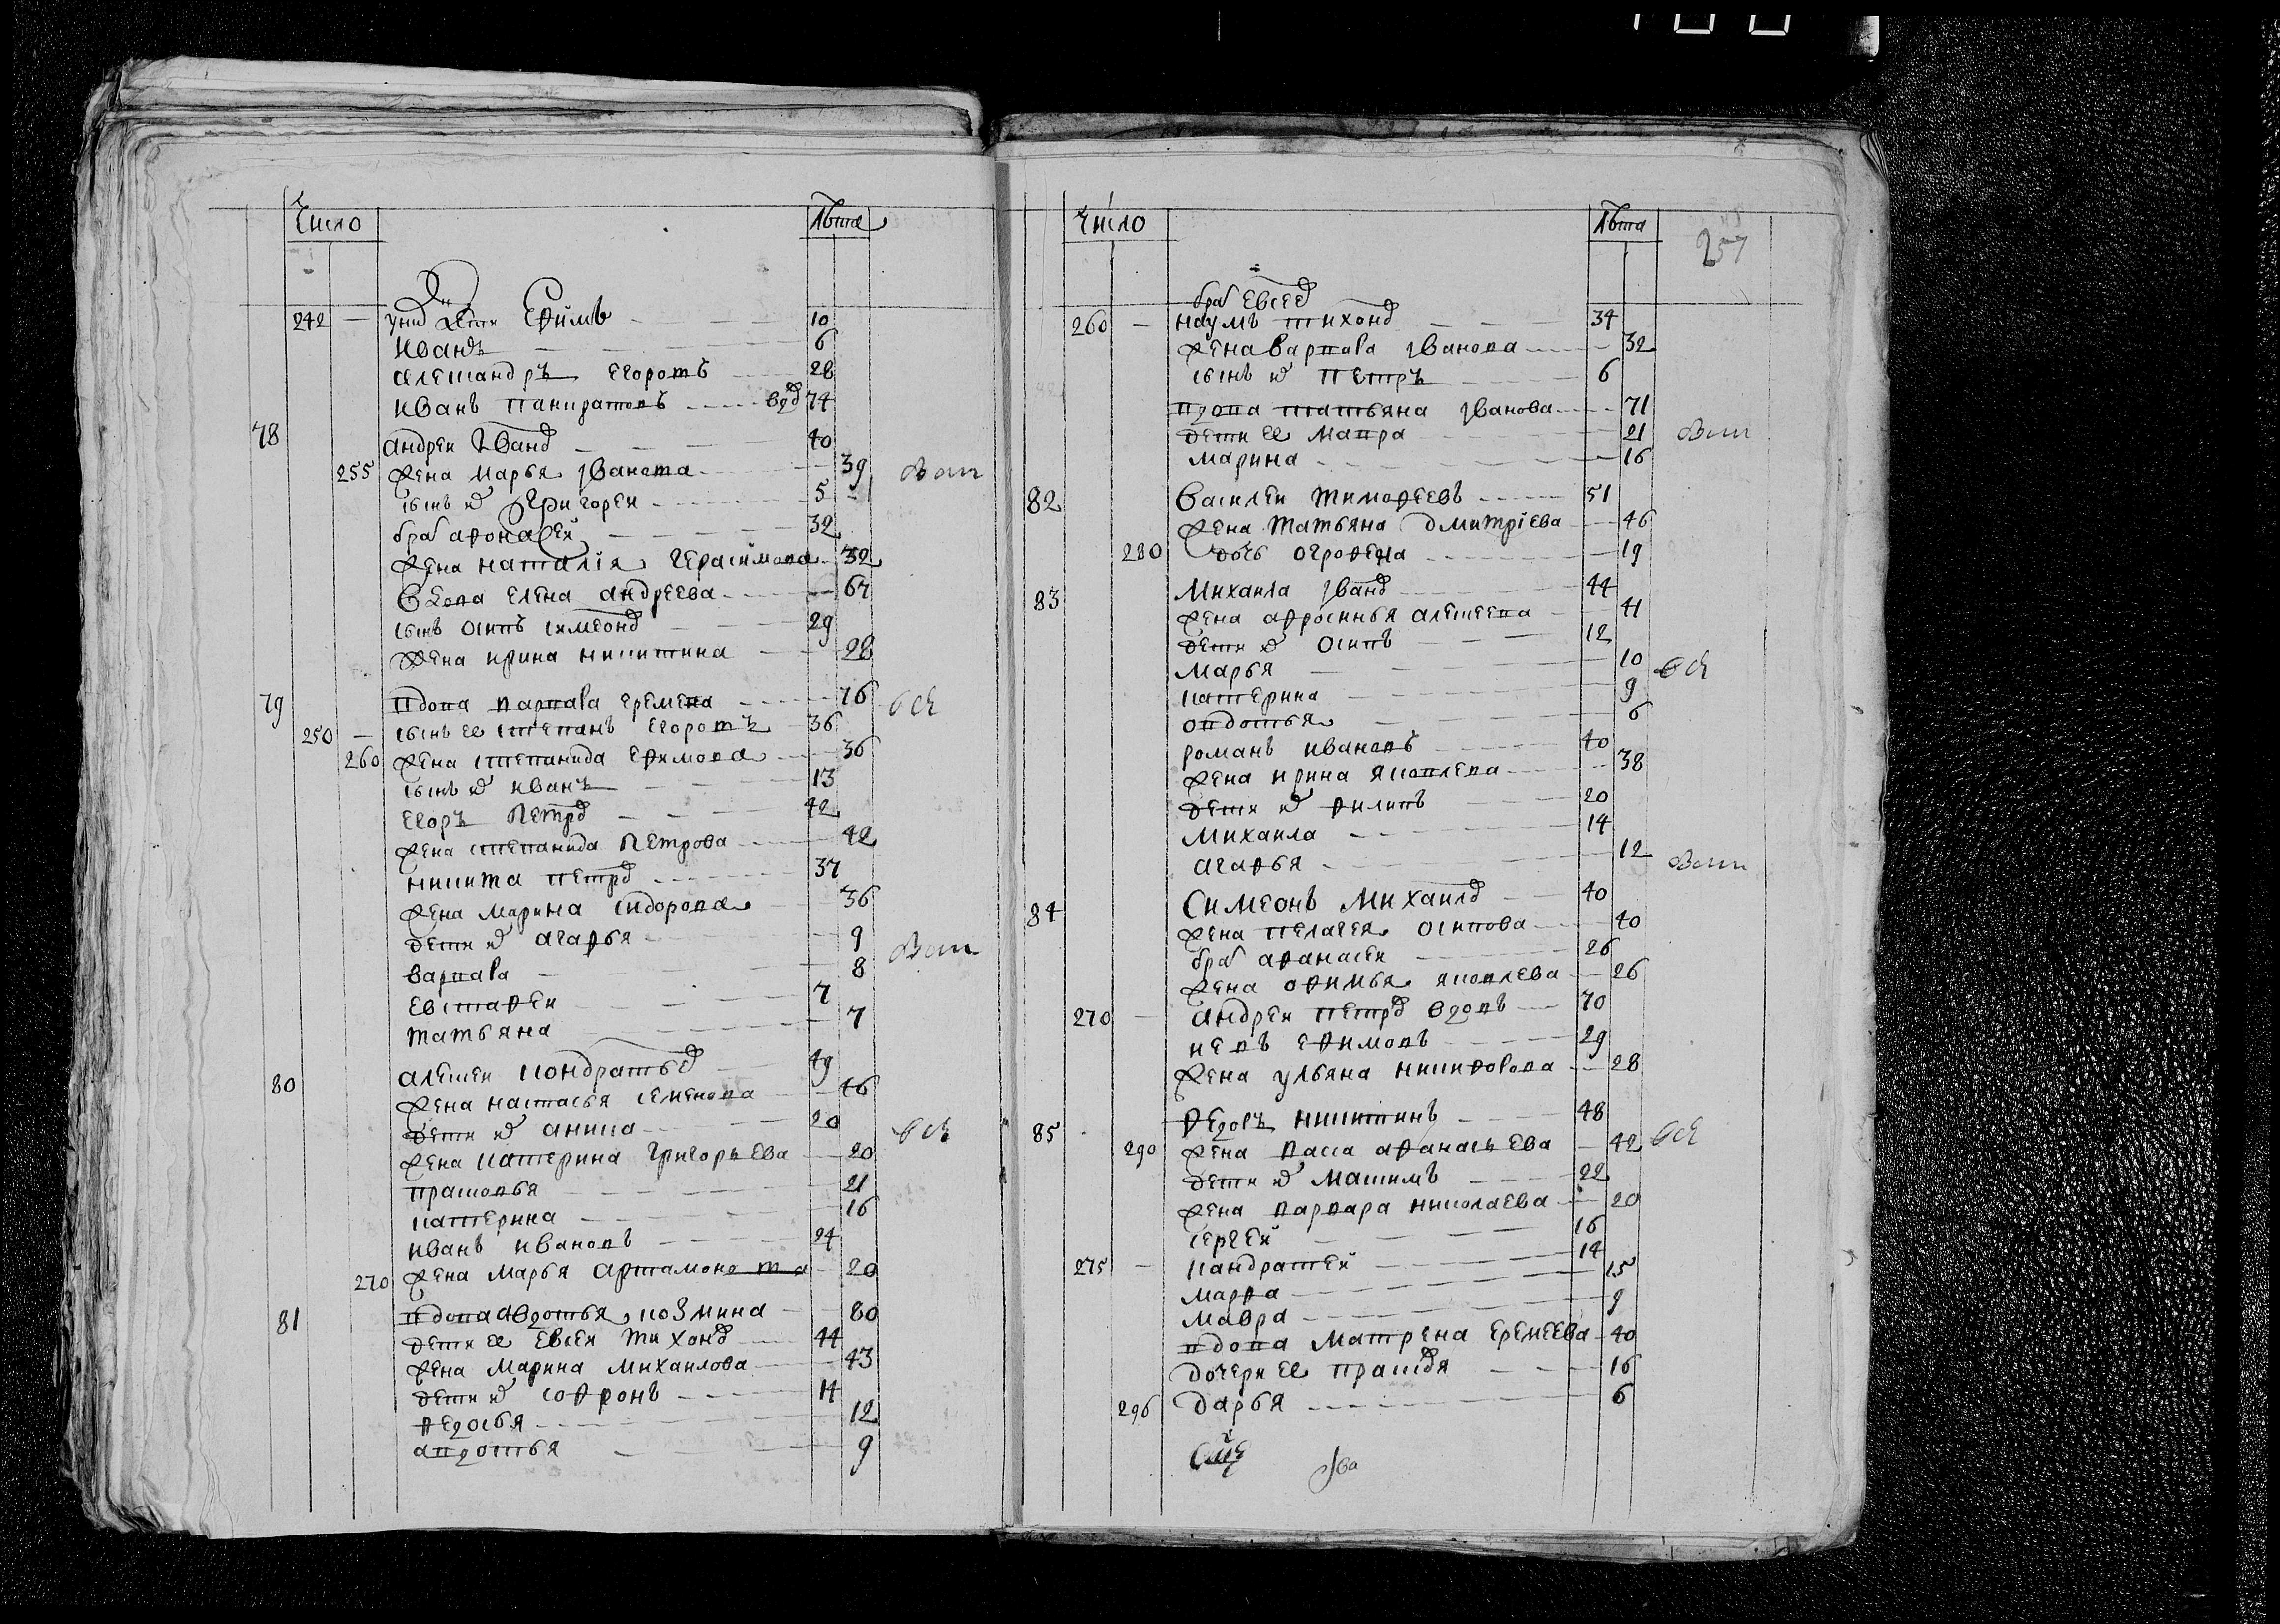 Число Лѣта
242 — у них дети Ефимъ 10
Иванъ 6
Александръ Егоровъ 28
Иванъ Панкратовъ вдо 74
78 Андреи Ивано 40
255 жена Марья Иванова 39
сынъ их Григореи 5
брат Афонасеи 32
жена Наталія Герасимова 32
вдова Елена Андреева 67
сынъ Осипъ Симеоно 29
жена Ирина Никитина 28
79 вдова Варвара Еремева 76
250 — сынъ ее Степанъ Егоровъ 36
260 жена Степанида Ефимова 36
сынъ их Иванъ 13
Егоръ Петро 42
жена Степанида Петрова 42
Никита Петро 37
жена Марина Сидорова 36
дети их Агафья 9
Варвара 8
Евстафеи 7
Татьяна 7
80 Алексеи Кондратье 49
жена Настасья Семенова 46
дети их Аника 20
жена Катерина Григорьева 20
Прасковья 21
Катерина 16
Иванъ Ивановъ 24
270 жена Марья Артамонова 20
81 вдова Авдотья Козмина 80
дети ее Евсеи Тихоно 44
жена Марина Михаилова 43
дети их Софронъ 14
Федосья 12
Авдотья 9
Число Лѣта
257
брат Евсее
260 — Наумъ Тихоно 34
жена Варвара Иванова 32
сынъ их Петръ 6
вдова Татьяна Иванова 71
дети ее Мавра 21
Марина 16
82 Василеи Тимофеевъ 51
жена Татьяна Дмитріева 46
280 дочь Огрофена 19
83 Михаила Ивано 44
жена Афросинья Алексеева 41
дети их Осипъ 12
Марья 10
Катерина 9
Овдотья 6
Романъ Ивановъ 40
жена Ирина Яковлева 38
дети их Филипъ 20
Михаила 14
Агафья 12
84 Симеонъ Михаило 40
жена Пелагея Осипова 40
брат Афанасеи 26
жена Офимья Яковлева 26
270 — Андреи Петро вдовъ 70
Иевъ Ефимовъ 29
жена Ульяна Никифорова 28
85 Федоръ Никитинъ 48
290 жена Васса Афанасьева 42
дети их Максимъ 22
жена Варвара Николаева 20
Сергеи 16
275 — Кандратеи 14
Марфа 15
Мавра 9
вдова Матрена Еремеева 40
дочери ее Прасков 16
296 Дарья 6